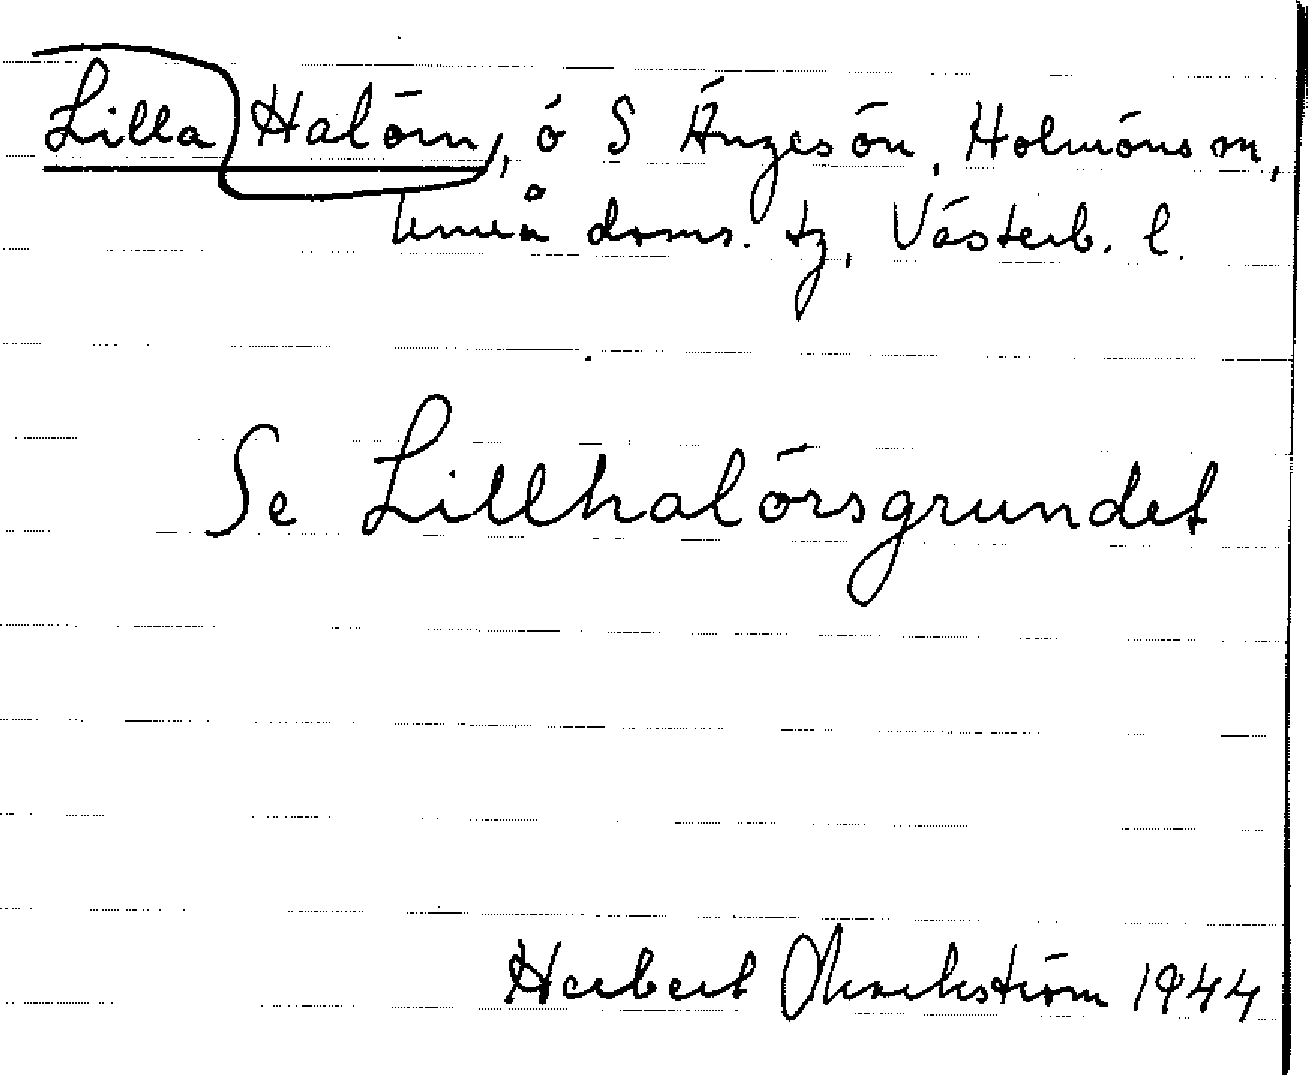 Lilla Halörn, ö S Ängesön, Holmöns sn,
Umeå doms. tg, Västerb. l.
Se Lillhalörsgrundet
Herbert 1944